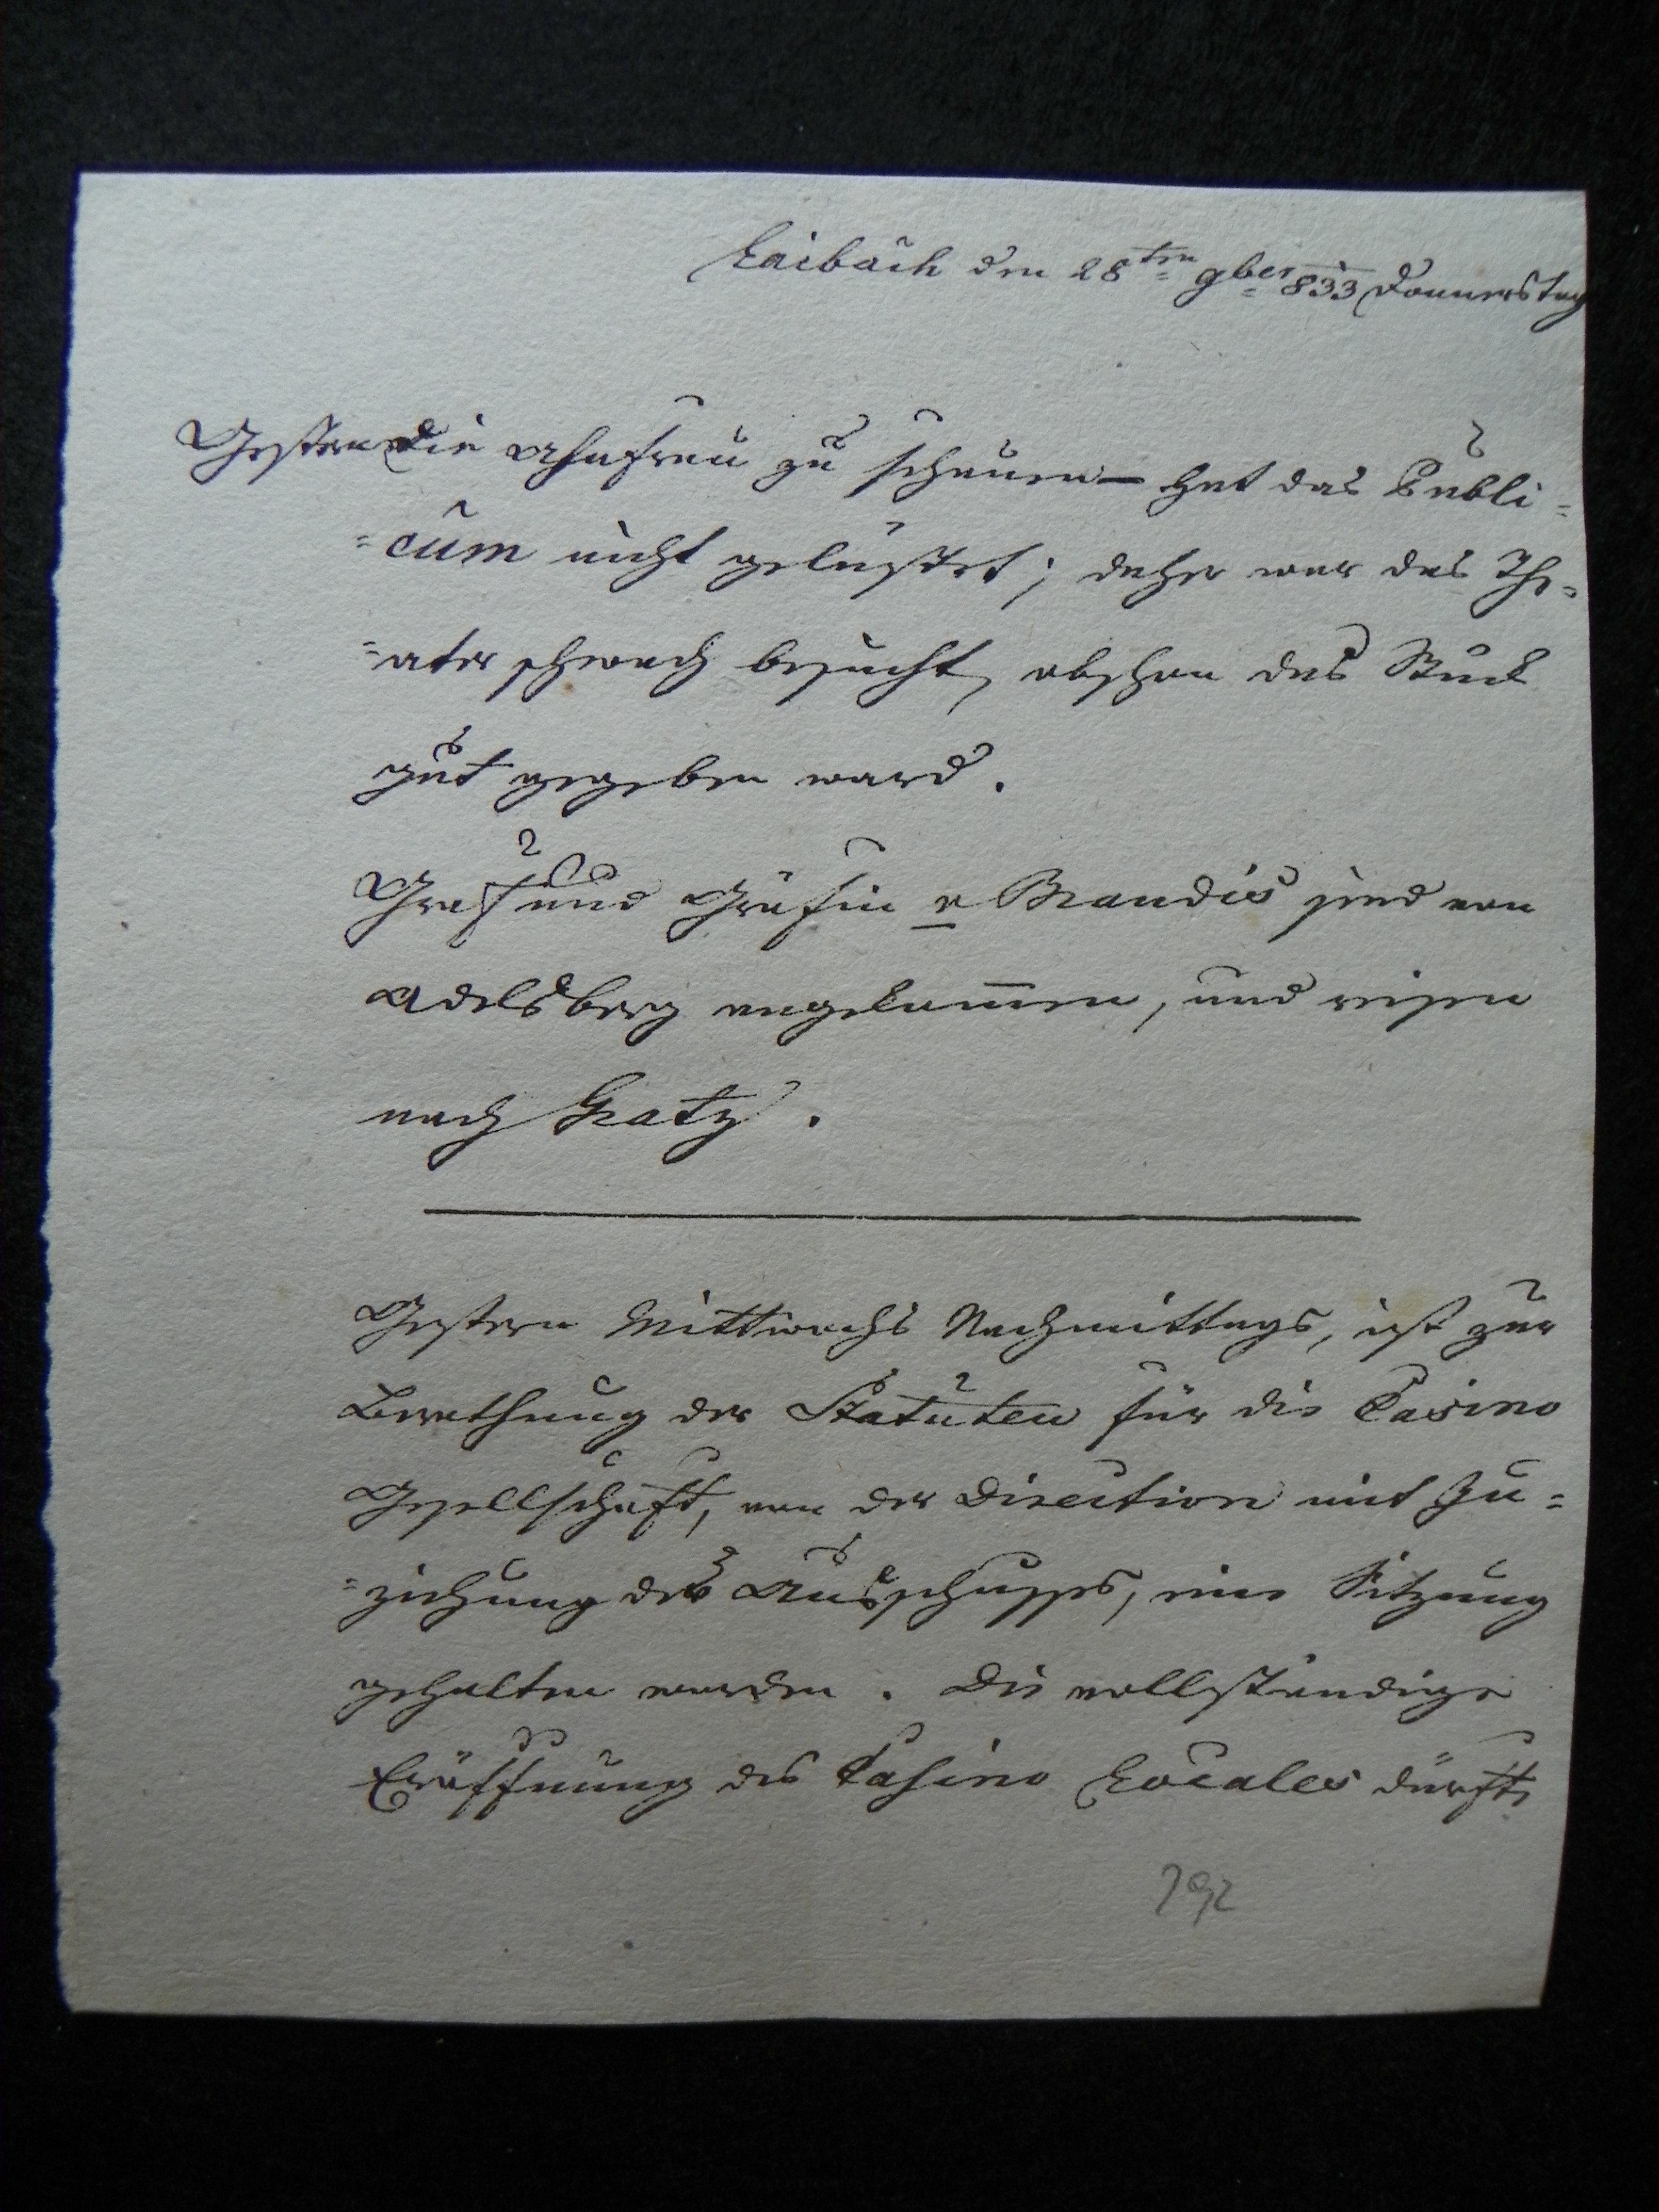 Laibach den 28ten 9ber 833 Donnerstag
Gestern die Ahnfrau zu schauen – hat das Publi=
=cum nicht gelüstet; daher war das The=
=ater schwach besucht, obschon das Stück
gut gegeben ward.
Graf und Gräfin v Brandis sind von
Adelsberg angekom̅en, und reisen
nach Gratz.
Gestern Mittwochs Nachmittags, ist zur
Berathung der Statuten für die Casino
Gesellschaft, von der Direction mit Zu=
=ziehung des Ausschusses, eine Sitzung
gehalten worden. Die vollständige
Eröffnung des Casino Locales dürfte
292